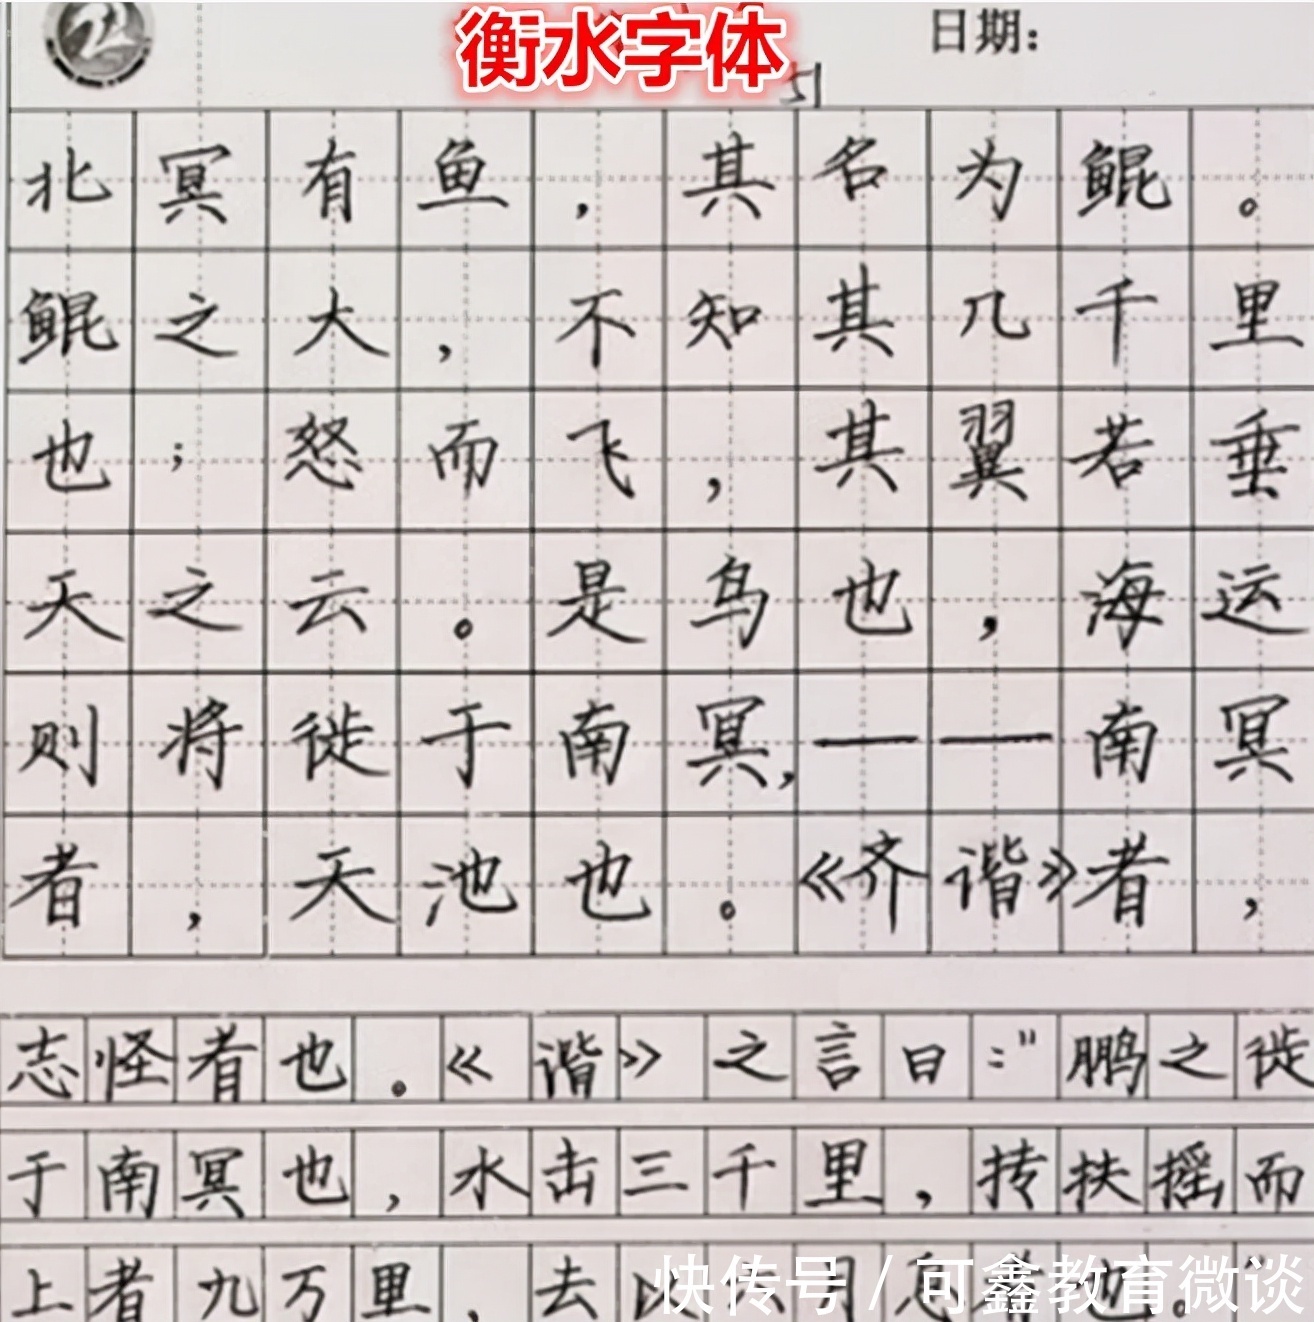 衡水字体
日期：
51
北冥有鱼，其名为鲲。
鲲之大，不知其几千里
也；怒而飞，其翼若垂
天之云。是鸟也，海运
则将徙于南冥，——南冥
者，天池也。《齐谐》者，
志怪者也。《谐》之言曰："鹏之徙
于南冥也，水击三千里，抟扶摇而
上者九万里，去以六月息者也。"
快传号/可鑫教育微谈